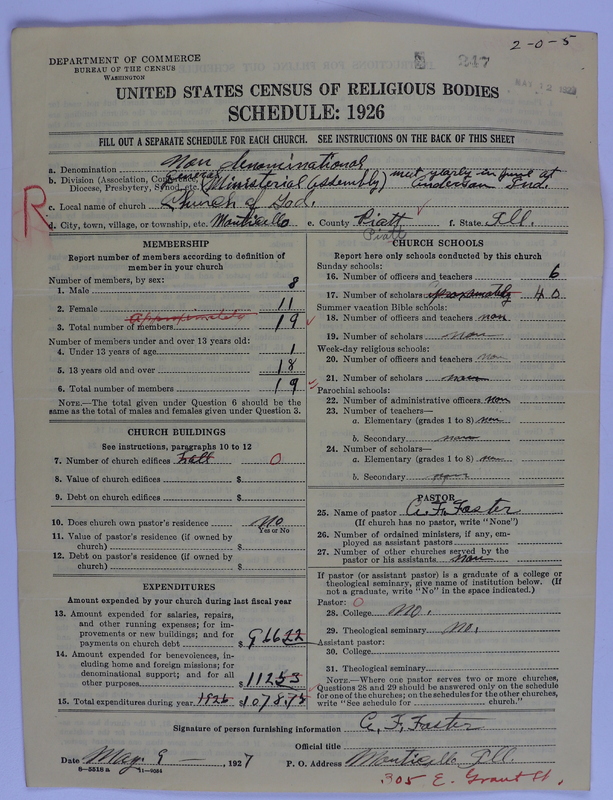 2-0-5
DEPARTMENT OF COMMERCE
BUREAU OF THE CENSUS
WASHINGTON
247
MAY 12
UNITED STATES CENSUS OF RELIGIOUS BODIES
SCHEDULE: 1926
FILL OUT A SEPARATE SCHEDULE FOR EACH CHURCH. SEE INSTRUCTIONS ON THE BACK OF THIS SHEET
a. Denomination Non denominational
b. Division (Association, Conference, Diocese, Presbytery, Synod, etc.) General (Ministerial Assembly) met yearly in June at Anderson Ind.
c. Local name of church Church of God.
R
d. City, town, village, or township, etc. Monticello e. County Piatt f. State Ill.
Piatt
MEMBERSHIP
Report number of members according to definition of
member in your church
Number of members, by sex:
1. Male 8
2. Female 11
approximately
3. Total number of members 19
Number of members under and over 13 years old:
4. Under 13 years of age 1
5. 13 years old and over 18
6. Total number of members 19
NOTE.—The total given under Question 6 should be
same as the total of males and females given under Question 3.
CHURCH BUILDINGS
See instructions, paragraphs 10 to 12
7. Number of church edifices hall 0
8. Value of church edifices $
9. Debt on church edifices $
10. Does church own pastor's residence No
Yes or No
11. Value of pastor's residence (if owned by
church) $
12. Debt on pastor's residence (if owned by
church) $
EXPENDITURES
Amount expended by your church during last fiscal year
13. Amount expended for salaries, repairs,
and other running expenses; for im-
provements or new buildings; and for
payments on church debt $ 966 22
14. Amount expended for benevolences, in-
cluding home and foreign missions; for
denominational support; and for all
other purposes $ 112 53
15. Total expenditures during year 1926 $ 1078.75
CHURCH SCHOOLS
Report here only schools conducted by this church
Sunday schools:
16. Number of officers and teachers 6
17. Number of scholars approximately 40
Summer vacation Bible schools:
18. Number of officers and teachers non
19. Number of scholars non
Week-day religious schools:
20. Number of officers and teachers non
21. Number of scholars non
Parochial schools:
22. Number of administrative officers non
23. Number of teachers—
a. Elementary (grades 1 to 8) non
b. Secondary non
24. Number of scholars—
a. Elementary (grades 1 to 8) non
b. Secondary non
PASTOR
25. Name of pastor C. F. Foster
(If church has no pastor, write "None")
26. Number of ordained ministers, if any, em-
ployed as assistant pastors
27. Number of other churches served by the
pastor or his assistants non
If pastor (or assistant pastor) is a graduate of a college or
theological seminary, give name of institution below. (If
not a graduate, write "No" in the space indicated.)
Pastor: 0
28. College No.
29. Theological seminary No.
Assistant pastor:
30. College
31. Theological seminary
NOTE.—Where one pastor serves two or more churches,
Questions 28 and 29 should be answered only on the schedule
for one of the churches; on the schedules for the other churches,
write "See schedule for church."
Signature of person furnishing information C. F. Foster
Official title
Date May 9 — , 1927 P. O. Address Monticello Ill.
8—5518 a 11—9084
305 E. Grant St.